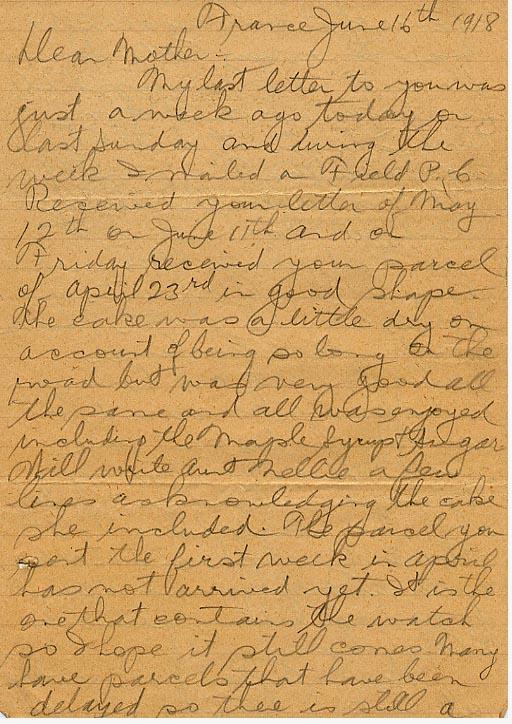 France June 16th 1918
Dear Mother:-
My last letter to you was
just a week ago today or
last Sunday and during the
week I mailed a Field P.C.
Received your letter of May
12th on June 11th and on
Friday received your parcel
of April 23rd in good shape.
The cake was a little dry on
account of being so long on the
road but was very good all
the same and all was enjoyed
including the Maple Syrup & Sugar
Will write Aunt Nellie a few
lines asknowledging the cake
she included. The parcel you
sent the first week in April
has not arrived yet. It is the
one that contains the watch
so I hope it still comes Many
have parcels that have been
delayed so there is still a